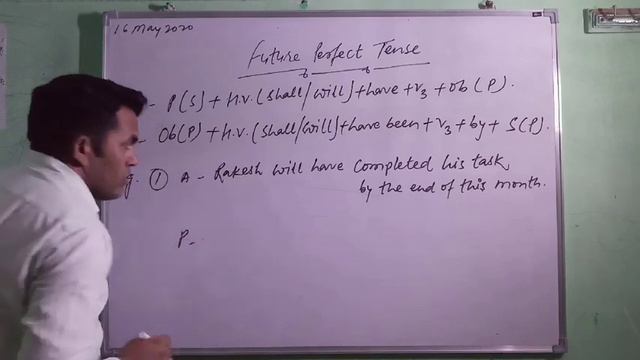 16 May 2020
Future Perfect Tense
- P(S) + H.V. (shall/will) + have + v3 + Ob (P).
- Ob(P) + H.V. (shall/will) + have been + v3 + by + S(P).
g. ① A - Rakesh will have completed his task
by the end of this month.
P-